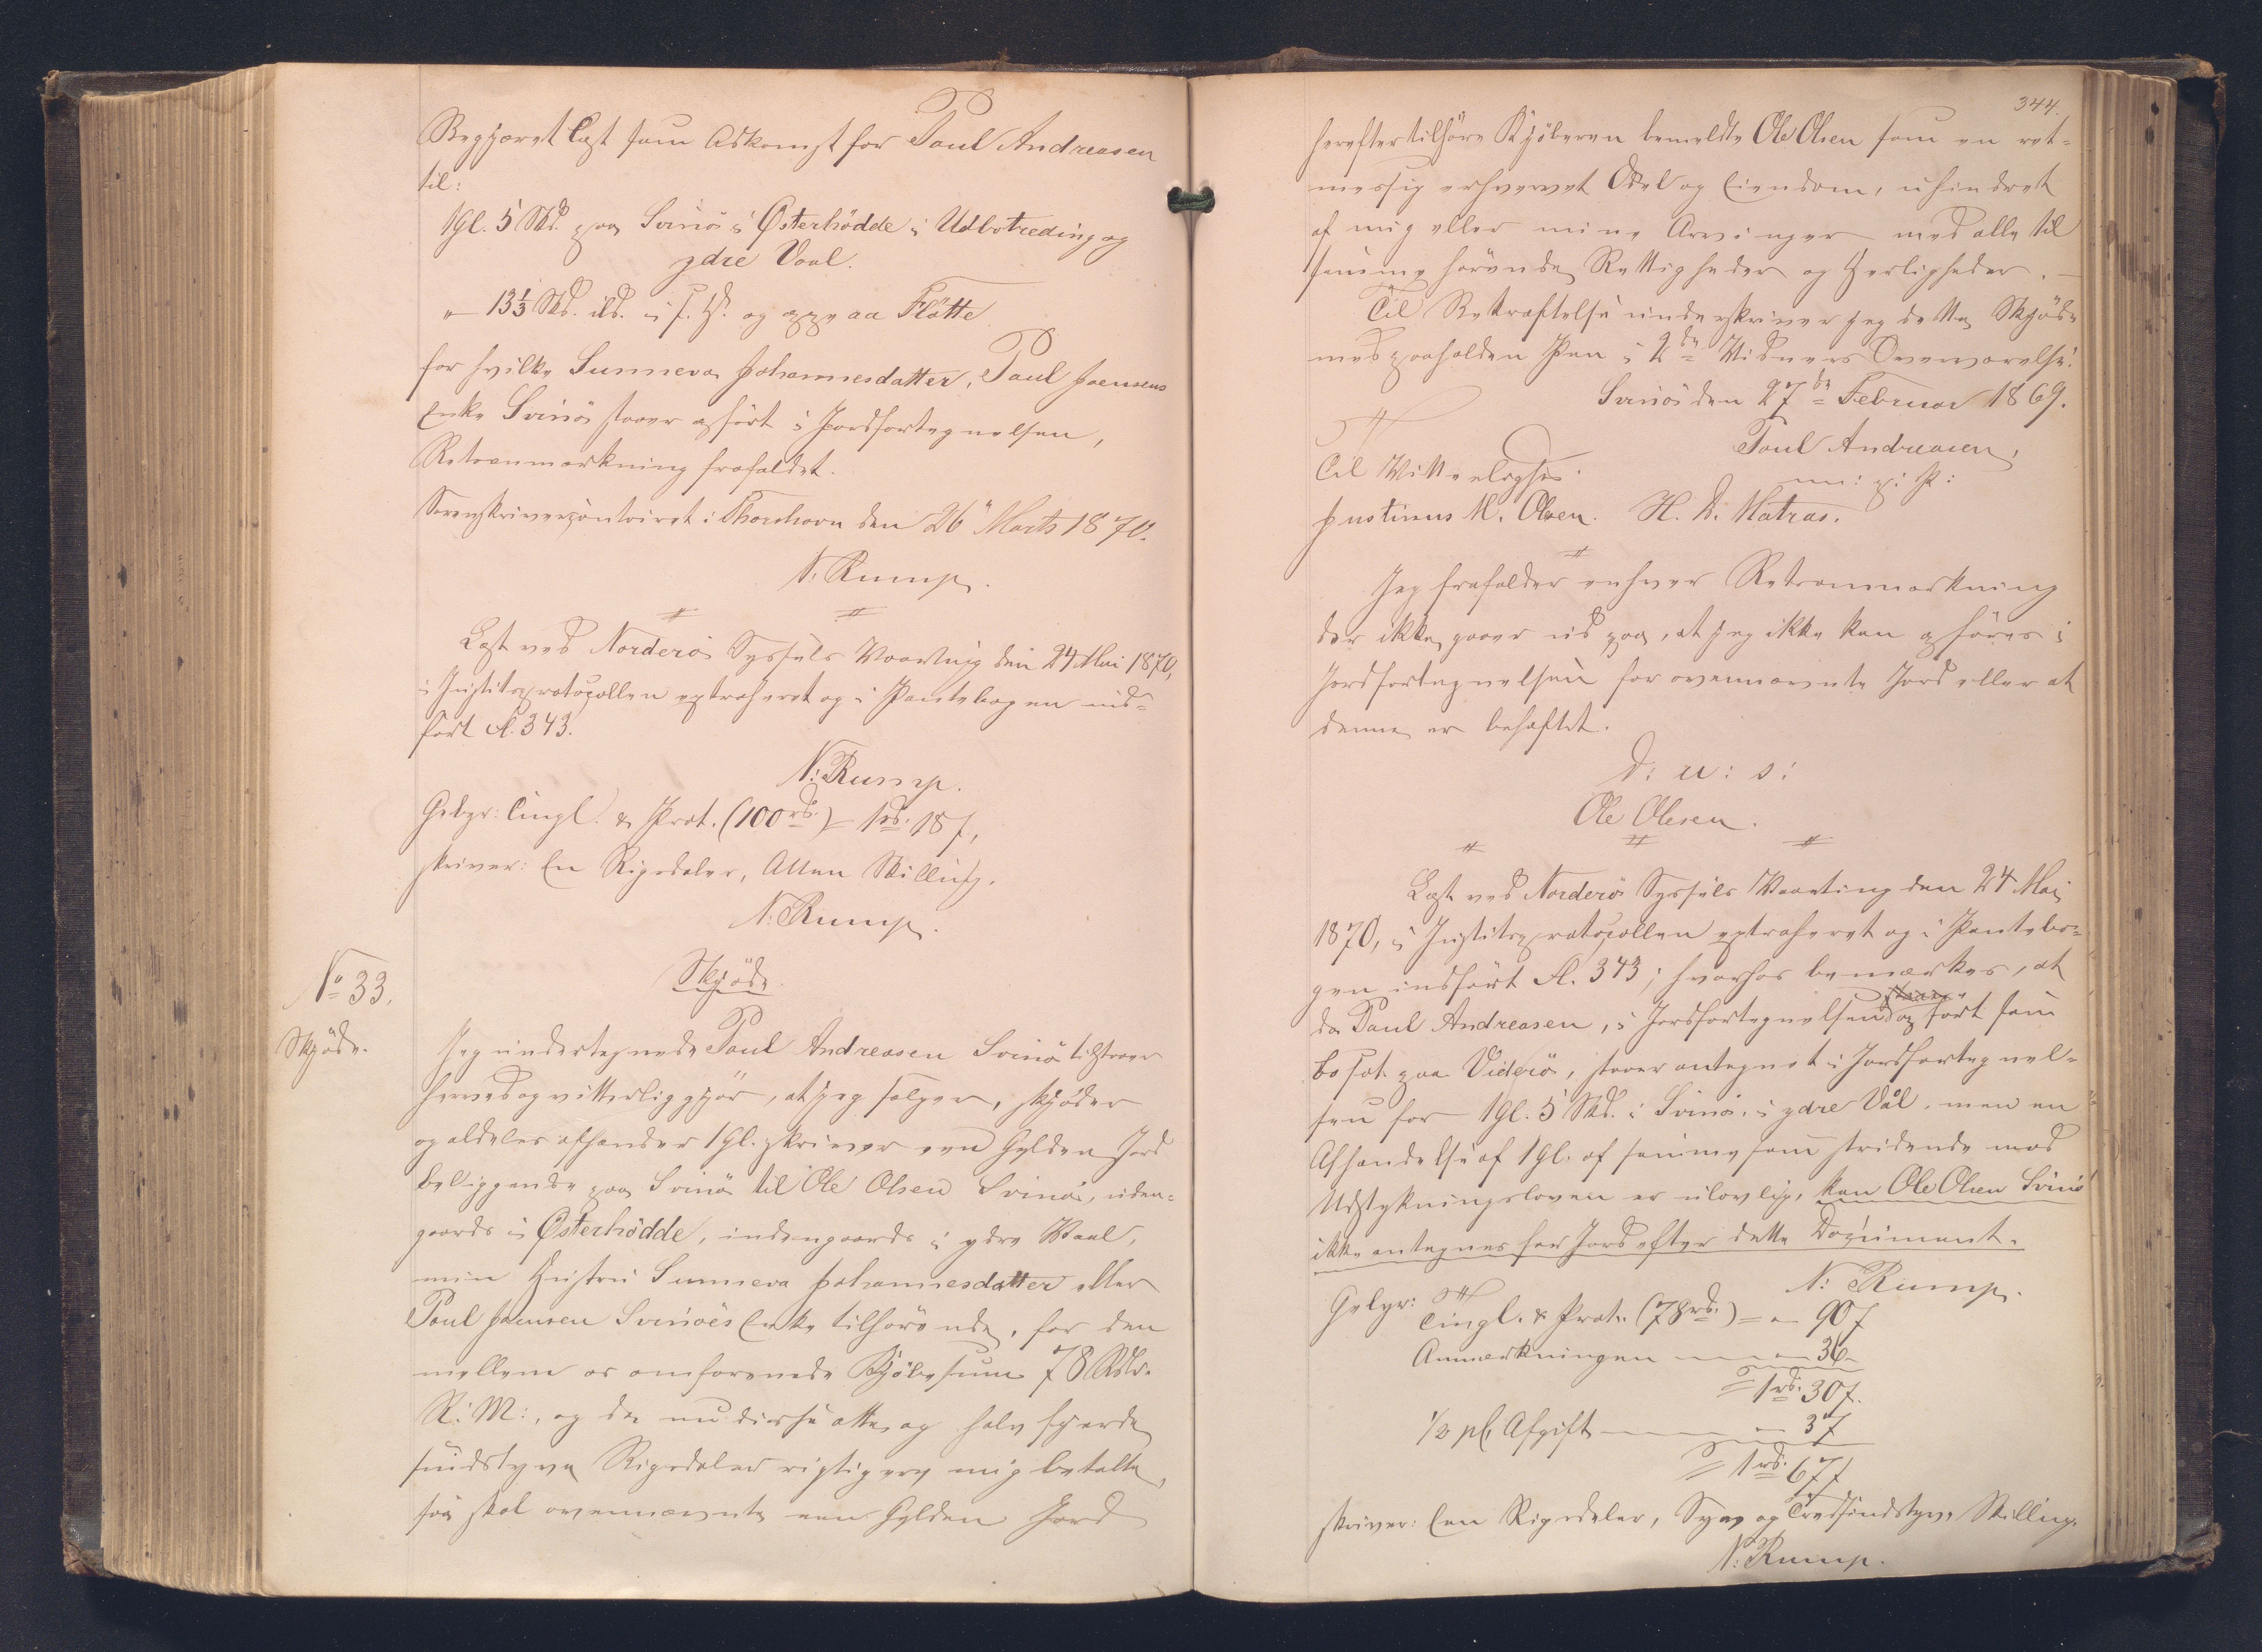 Begjæret læst som Adkomst for Poul Andreasen
til:
1 Gl. 5 Skd. paa Svinö i Østerhödde i Udbotreding og
ydre Vaal.
" — 13⅓ Skd. ibd. i s. H. og oppe aa Fløtte
for hvilke Sunneva Johannesdatter, Poul Joensens
Enke Svinö staaer opfört i Jordfortegnelsen,
Retsanmærkning frafaldet.
Sorenskrivercontoiret i Thorshavn den 26 Marts 1870.
N. Rump.
Læst ved Norderö Syssels Vaarting den 24 Mai 1870,
i Justitsprotocollen extraheret og i Pantebogen ind-
fört fl. 343.
N: Rump.
Gebyr: Tingl. & Prot. (100 rd.) = 1 rd. 18 s,
skriver: En Rigsdaler, Atten Skilling.
N: Rump.
No 33.
Skjöde.
Skjöde.
Jeg undertegnede Poul Andreasen Svinö tilstaaer
herved og vitterliggjör, at jeg sælger, skjöder
og aldeles afhænder 1 Gl. skriver een Gylden Jord
beliggende paa Svinö til Ole Olsen Svinö, uden-
gaards i Østerhödde, indengaards i ydre Vaal,
min Hustru Sunneva Johannesdatter eller
Poul Joensen Svinöes Enke tilhörende, for den
mellem os omforenede Kjöbesum 78 Rdlr.
R: M:, og da nu disse otte og halvfjerde
sindstyve Rigsdaler rigtig ere mig betalte,
saa skal ovennævnte een Gylden Jord
344.
herefter tilhöre Kjöberen bemeldte Ole Olsen som en ret-
mæssig erhvervet Odel og Eiendom, uhindret
af mig eller mine Arvinger med alle til
samme hörende Rettigheder og Herligheder. —
Til Bekræftelse underskriver jeg dette Skjöde
med paaholden Pen i 2de Vidners Overværelse.
Svinö den 27de Februar 1869.
Poul Andreasen,
m: p: P:
Til Vitterlighed:
Justinus M. Olsen. H. D. Matras.
Jeg frafalder enhver Retsanmærkning
der ikke gaaer ud paa, at jeg ikke kan opföres i
Jordfortegnelsen for ovennævnte Jord eller at
denne er behæftet.
D: u: s:
Ole Olesen.
Læst ved Norderö Syssels Vaarting den 24 Mai
1870, i Justitsprotocollen extraheret og i Pantebo-
gen indfört fl. 343; hvorhos bemærkes, at
da Poul Andreasen, i Jordfortegnelsen opfört som
bosat paa Viderö, staaer antegnet i Jordfortegnel-
sen for 1 Gl. 5 Skd. i Svinö i ydre Vål, men en
Afhændelse af 1 Gl. af samme som stridende mod
Udstykningsloven er ulovlig, kan Ole Olsen Svinö
ikke antegnes for Jord efter dette Document.
N: Rump.
Gebyr: Tingl. & Prot. (78 rd.) = " — 90 s
Anmærkningen — " — 36 -
= 1 rd. 30 s.
½ pCt Afgift — " — 37
= 1 rd. 67 s
skriver: Een Rigsdaler, Syv og Tredsindstyve Skilling.
N: Rump.